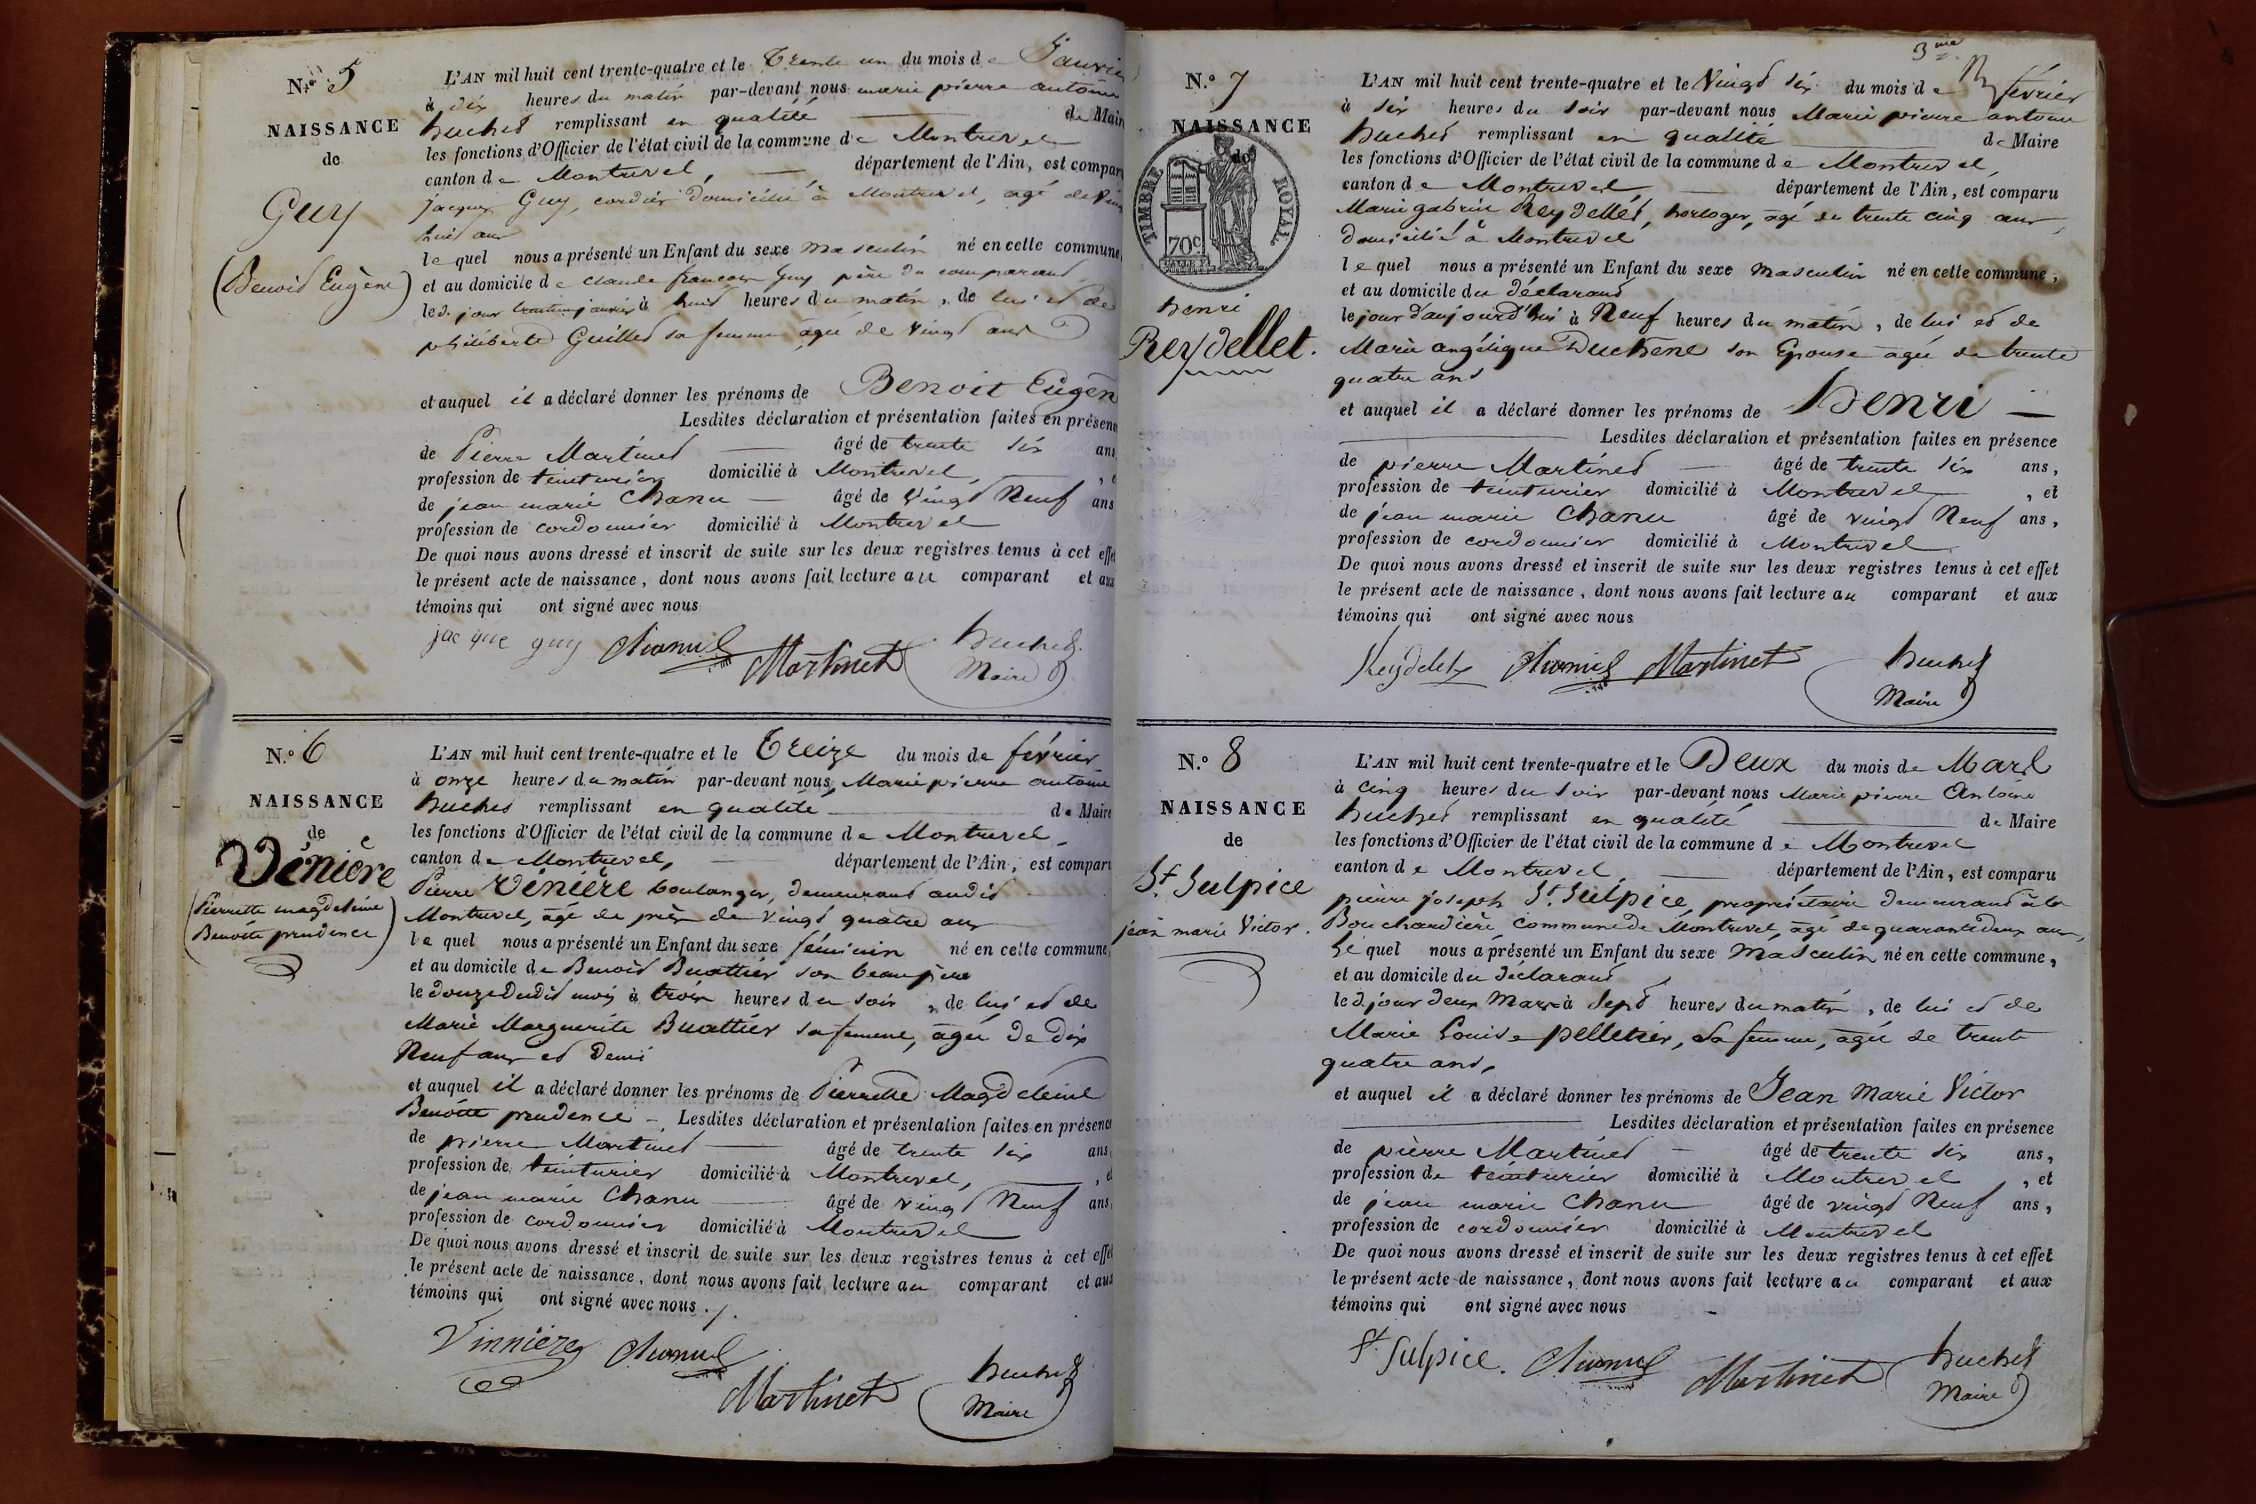 N.º 5
NAISSANCE
de
Guy
(Benoit Eugène)
L'AN mil huit cent trente-quatre et le Trente un du mois de Janvier
à dix heures du matin par-devant nous marie pierre antoine
huchet remplissant en qualité de Maire
les fonctions d'Officier de l'état civil de la commune de Montrevel
canton de Montrevel, département de l'Ain, est comparu
Jacques Guy, cordier domicilié à Montrevel, agé de vingt
huit ans
lequel nous a présenté un Enfant du sexe masculin né en cette commune,
et au domicile de claude françois Guy père du comparant
led. jour trente un janvier à huit heures du matin, de lui et de
philiberte Guillet sa femme agée de vingt ans
et auquel il a déclaré donner les prénoms de Benoit Eugène
Lesdites déclaration et présentation faites en présence
de Pierre Martinet âgé de trente six ans,
profession de teinturier domicilié à Montrevel, , et
de jean marie Chanu âgé de vingt Neuf ans
profession de cordonnier domicilié à Montrevel
De quoi nous avons dressé et inscrit de suite sur les deux registres tenus à cet effet
le présent acte de naissance, dont nous avons fait lecture au comparant et aux
témoins qui ont signé avec nous
jacque guy Martinet huchet
Maire
N.º 6
NAISSANCE
de
Vénière
(Pierrette magdeleine
Benoite prudence)
L'AN mil huit cent trente-quatre et le Treize du mois de février
à onze heures du matin par-devant nous Marie pierre antoine
huchet remplissant en qualité de Maire
les fonctions d'Officier de l'état civil de la commune de Montrevel
canton de Montrevel, département de l'Ain, est comparu
Pierre Vénière boulanger, demeurant audit
Montrevel, âgé de près de vingt quatre ans
lequel nous a présenté un Enfant du sexe féminin né en cette commune,
et au domicile de Benoit Buattier son beaupère
le douze dudit mois à trois heures du soir, de lui et de
Marie Marguerite Buattier sa femme, agée de dix
Neuf ans et demi
et auquel il a déclaré donner les prénoms de Pierrette Magdeleine
Benoite prudence - Lesdites déclaration et présentation faites en présence
de pierre Martinet âgé de trente six ans,
profession de teinturier domicilié à Montrevel, , et
de jean marie Chanu âgé de vingt Neuf ans,
profession de cordonnier domicilié à Montrevel
De quoi nous avons dressé et inscrit de suite sur les deux registres tenus à cet effet
le présent acte de naissance, dont nous avons fait lecture au comparant et aux
témoins qui ont signé avec nous.
Vinnière
Martinet huchet
Maire
3me
N.º 7
NAISSANCE
de
TIMBRE ROYAL
70c
henri
Reydellet.
L'AN mil huit cent trente-quatre et le Vingt six du mois de février
à six heures du soir par-devant nous Marie pierre antoine
huchet remplissant en qualité de Maire
les fonctions d'Officier de l'état civil de la commune de Montrevel,
canton de Montrevel département de l'Ain, est comparu
Marie gabriel Reydellet, horloger, âgé de trente cinq ans,
domicilié à Montrevel
lequel nous a présenté un Enfant du sexe masculin né en cette commune,
et au domicile du déclarant
le jour d'aujourd'hui à Neuf heures du matin, de lui et de
Marie angélique Duchene son Epouse agée de trente
quatre ans
et auquel il a déclaré donner les prénoms de Henri
Lesdites déclaration et présentation faites en présence
de pierre Martinet âgé de trente six ans,
profession de teinturier domicilié à Montrevel, et
de jean marie Chanu âgé de vingt Neuf ans,
profession de cordonnier domicilié à Montrevel
De quoi nous avons dressé et inscrit de suite sur les deux registres tenus à cet effet
le présent acte de naissance, dont nous avons fait lecture au comparant et aux
témoins qui ont signé avec nous
Reydelet Martinet huchet
Maire
N.º 8
NAISSANCE
de
St. Sulpice
jean marie Victor.
L'AN mil huit cent trente-quatre et le Deux du mois de Mars
à cinq heures du soir par-devant nous Marie pierre Antoine
huchet remplissant en qualité de Maire
les fonctions d'Officier de l'état civil de la commune de Montrevel
canton de Montrevel, département de l'Ain, est comparu
pierre joseph St. Sulpice, propriétaire demeurant à la
Bouchardière commune de Montrevel, agé de quarante deux ans,
Lequel nous a présenté un Enfant du sexe Masculin né en cette commune,
et au domicile du déclarant
led. jour deux Mars à sept heures du matin, de lui et de
Marie Louise pelletier, sa femme, agée de trente
quatre ans,
et auquel il a déclaré donner les prénoms de Jean Marie Victor
Lesdites déclaration et présentation faites en présence
de pierre Martinet âgé de trente six ans,
profession de teinturier domicilié à Montrevel, et
de jean marie Chanu âgé de vingt Neuf ans,
profession de cordonnier domicilié à Montrevel
De quoi nous avons dressé et inscrit de suite sur les deux registres tenus à cet effet
le présent acte de naissance, dont nous avons fait lecture au comparant et aux
témoins qui ont signé avec nous
St. Sulpice. Martinet huchet
Maire